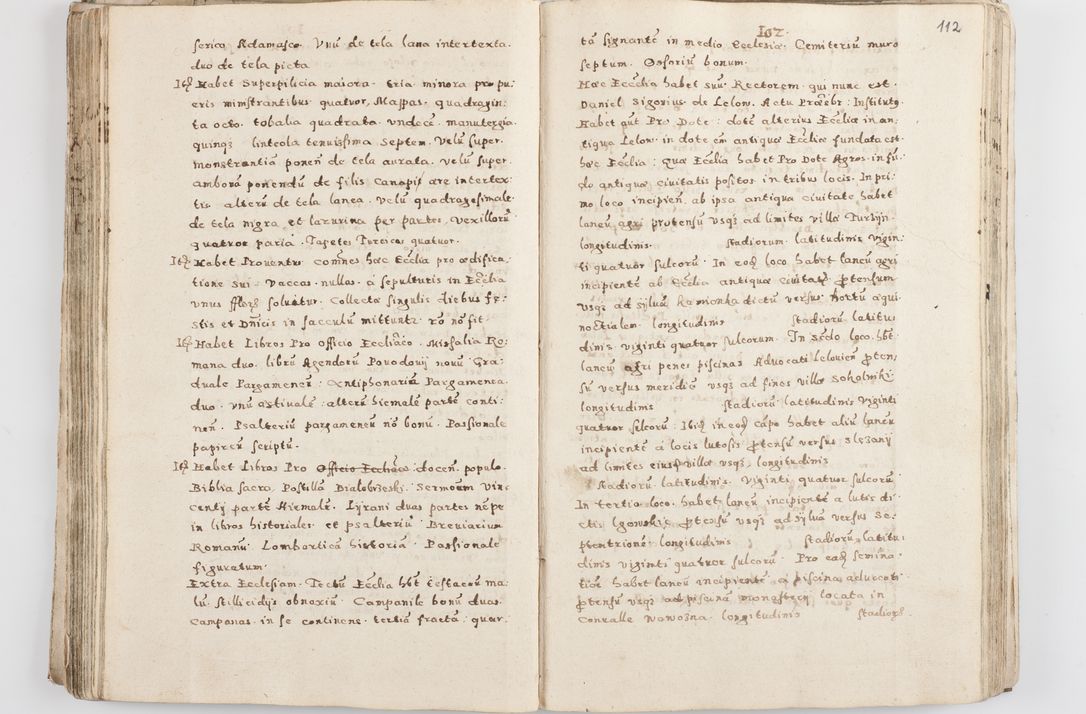 serico Adamasco. Vnū de tela lana intertexta.
duo de tela picta
Itẽ Habet Superpilicia maiora. tria minora pro pu:
eris ministrantibus quatuor, Mappas quadragin:
ta octo. tobalia quadrata. vndecẽ manutergia.
quinqȝ linteola tenuissima septem. Velũ super
monstrantiã ponen̄ de tela aurata. velũ super
amborã ponendũ de filis Canapis aere intertex:
tis alterũ de tela lanea. velũ quadragesimale
de tela nigra et lazurina per partes. Vexillorũ
quatuor paria. Tapetes Turcicos quatuor.
Itẽ Habet Prouentus com̃nes haec Ecclīa pro aedifica:
tione sui. Vaccas. nullas. a sepulturis in Ecclīa
vnus florȝ soluitur. Collecta singulis diebus fe:
stis et Dñicis in sacculũ mittuntr rõ nõ fit.
Itẽ Habet Libros Pro officio Ecclīaco. Missalia Ro:
mana duo. librũ Agendorũ Povodovij nouũ Gra:
duale Pargameneũ. Antiphonaria Pargamenea.
duo. vnũ aestiuale: alterũ hiemale partẽ conti:
nen̄. Psalteriũ pargameneũ nõ bonũ. Passionale
papireũ scriptũ.
Itẽ Habet Libros Pro Officio Ecclīaco docen̄. populo.
Biblia sacra. Postillã Bialobrzeski. Sermonũm Vin:
centij partẽ Hiemalẽ. Lijrani duas partes nẽpe
in libros historiales et psalteriũ. Breviarium
Romanũ. Lombartica historia. Passionale
figuratum.
Extra Ecclesiam. Tectũ Ecclīa hb̃t cestaceũ ma:
lũ. stillicidijs obnoxiũ. Campanile bonũ duas.
Campanas in se continens. tertiã fractã: quar:
112
102.
tã signantẽ in medio Ecclesiae. Cemiteriũ muro
septum. Ossoriũ bonum.
Haec Ecclīa habet suũ Rectorem, qui nunc est.
Daniel Sigonius de Lelow. Actu Praesbr: Institutȝ.
Habet aũt Pro Dote: dotẽ alterius Ecclīae in an:
tiqua Lelow. in dote em̃ antiquae Ecclīae fundata est
haec Ecclīa: Quae Ecclīa habet Pro Dote Agros. in fũ:
do antiquae ciuitatis positos in tribus locis. In pri:
mo loco incipien̄. ab ipsa antiqua ciuitate habet
laneũ agri protensũ vsqȝ ad limites villae Turzijn.
longitudinis stadiorum. latitudinis vigin:
ti quatuor sulcorũ. In eodẽ loco habet laneũ agri
incipientẽ ab Ecclīa antiquae ciuitatȝ ꝓtensum
vsqȝ ad syluã Kamionka dictũ versus Hortũ aequi:
noctialem. longitudinis stadiorũ latitu:
dinis viginti quatuor sulcorum. In sc̃do loco. hb̃t.
laneũ agri penes piscinas Aduocati Lelouien̄ ꝓten:
sũ versus meridiẽ vsqȝ ad fines villae Sokolniki
longitudinis stadiorũ latitudinis viginti
quatuor sulcorũ: Ibidẽ in eodẽ cãpo habet aliũ laneũ
incipientẽ a locis lutosis ꝓtensũ versus Slezanÿ
ad limites eiusdẽ villae vsqȝ. longitudinis
stadiorũ latitudinis. viginti quatuor sulcorũ.
In tertio loco. habet laneũ incipientẽ a lutis di:
ctis Lgowskie ꝓtensũ vsqȝ ad syluã versus Se:
ptentrionẽ longitudinis stadiorũ latitu:
dinis viginti quatuor sulcorũ. Pro eadẽ semina:
tiõe habet laneũ incipientẽ a piscina aduocati
ꝓtensũ vsqȝ ad piscinã monasterij locata in
Conualle Nawozna. longitudinis stadiorȝ